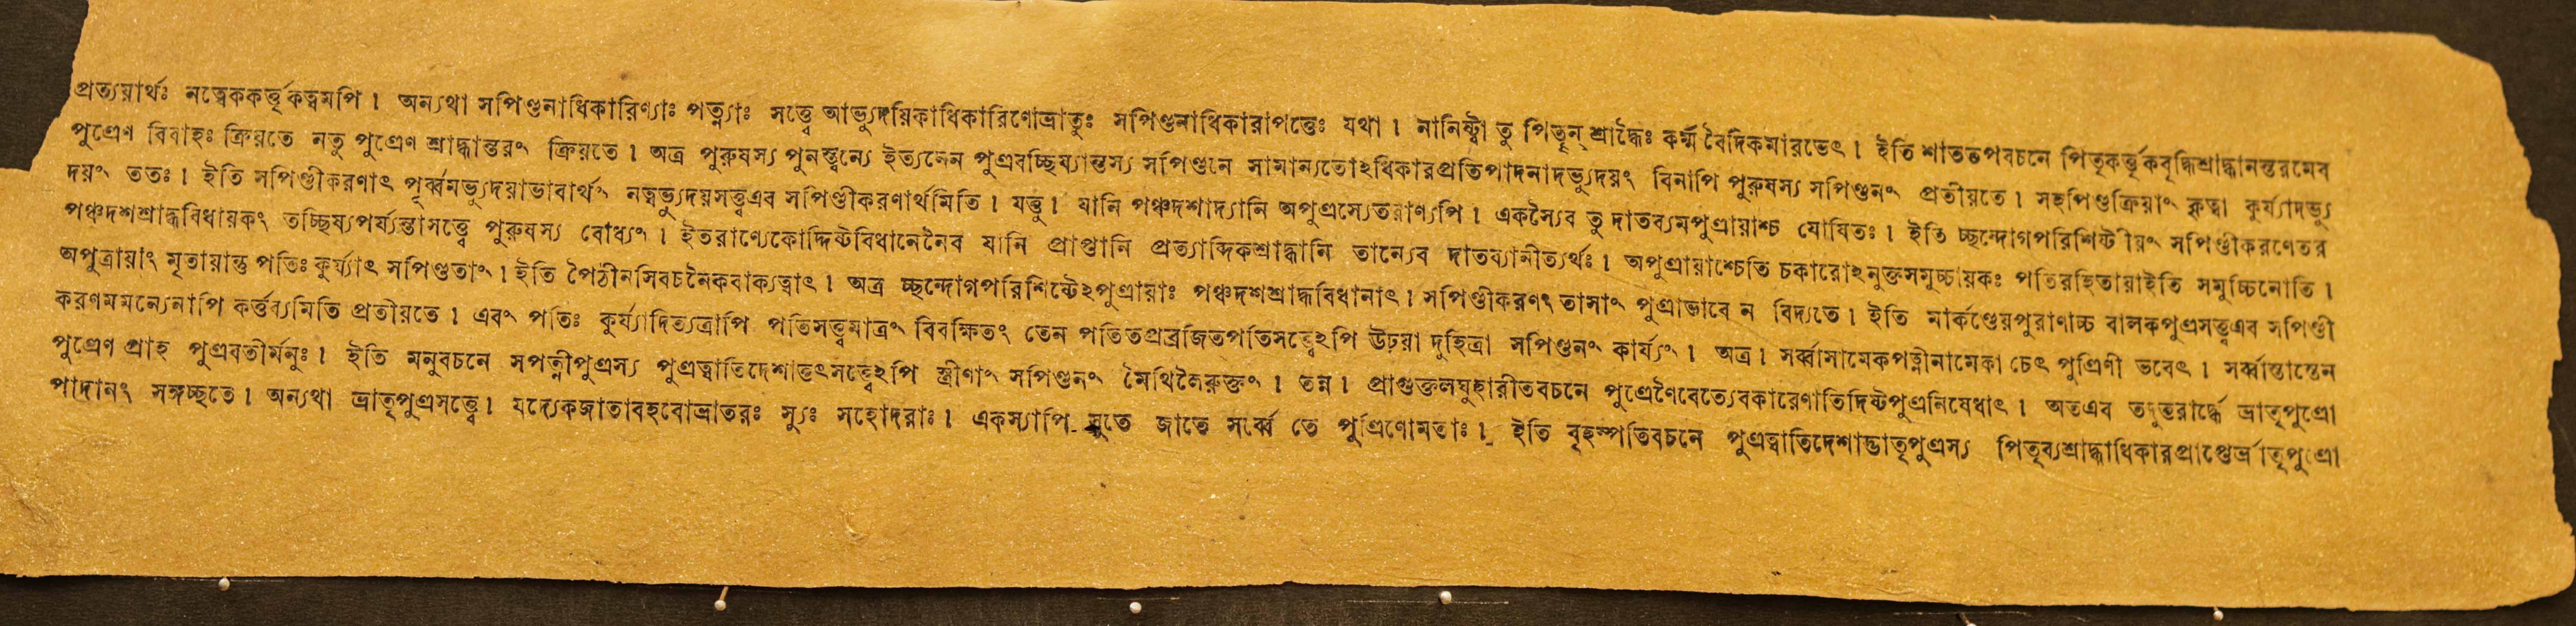 প্রত্যয়ার্থঃ নত্বেককর্ত্তৃকত্বমপি । অন্যথা সপিণ্ডনাধিকারিণ্যাঃ পত্ন্যাঃ সত্ত্বে আভ্যুদয়িকাধিকারিণোভ্রাতুঃ সপিণ্ডনাধিকারাপত্তেঃ যথা । নানিষ্ট্বা তু পিতৄন্ শ্রাদ্ধৈঃ কর্ম্ম বৈদিকমারভেৎ । ইতি শাতাতপবচনে পিতৃকর্ত্তৃকবৃদ্ধিশ্রাদ্ধানন্তরমেব
পুত্রেণ বিবাহঃ ক্রিয়তে নতু পুত্রেণ শ্রাদ্ধান্তরং ক্রিয়তে । অত্র পুরুষস্য পুনস্ত্বন্যে ইত্যনেন পুত্রবচ্ছিষ্যান্তস্য সপিণ্ডনে সামান্যতোঽধিকারপ্রতিপাদনাদভ্যুদয়ং বিনাপি পুরুষস্য সপিণ্ডনং প্রতীয়তে । সহপিণ্ডক্রিয়াং কৃত্বা কুর্য্যাদভ্যু
দয়ং ততঃ । ইতি সপিণ্ডীকরণাৎ পূর্ব্বমভ্যুদয়াভাবার্থং নত্বভ্যুদয়সত্ত্বএব সপিণ্ডীকরণার্থমিতি । যত্তু । যানি পঞ্চদশাদ্যানি অপুত্রস্যেতরাণ্যপি । একস্যৈব তু দাতব্যমপুত্রায়াশ্চ যোষিতঃ । ইতি চ্ছন্দোগপরিশিষ্টীয়ং সপিণ্ডীকরণেতর
পঞ্চদশশ্রাদ্ধবিধায়কং তচ্ছিষ্যপর্য্যন্তাসত্ত্বে পুরুষস্য বোধ্যং । ইতরাণ্যেকোদ্দিষ্টবিধানেনৈব যানি প্রাপ্তানি প্রত্যাব্দিকশ্রাদ্ধানি তান্যেব দাতব্যানীত্যর্থঃ । অপুত্রায়াশ্চেতি চকারোঽনুক্তসমুচ্চায়কঃ পতিরহিতায়াইতি সমুচ্চিনোতি ।
অপুত্রায়াং মৃতায়ান্তু পতিঃ কুর্য্যাৎ সপিণ্ডতাং । ইতি পৈঠীনসিবচনৈকবাক্যত্বাৎ । অত্র চ্ছন্দোগপরিশিষ্টেঽপুত্রায়াঃ পঞ্চদশশ্রাদ্ধবিধানাৎ । সপিণ্ডীকরণং তাসাং পুত্রাভাবে ন বিদ্যতে । ইতি মার্কণ্ডেয়পুরাণাচ্চ বালকপুত্রসত্ত্বএব সপিণ্ডী
করণমমন্যেনাপি কর্ত্তব্যমিতি প্রতীয়তে । এবং পতিঃ কুর্য্যাদিত্যত্রাপি পতিসত্ত্বমাত্রং বিবক্ষিতং তেন পতিতপ্রব্রজিতপতিসত্ত্বেঽপি ঊঢ়য়া দুহিত্রা সপিণ্ডনং কার্য্যং । অত্র । সর্ব্বাসামেকপত্নীনামেকা চেৎ পুত্রিণী ভবেৎ । সর্ব্বাস্তাস্তেন
পুত্রেণ প্রাহ পুত্রবতীর্মনুঃ । ইতি মনুবচনে সপত্নীপুত্রস্য পুত্রত্বাতিদেশাত্তৎসত্ত্বেঽপি স্ত্রীণাং সপিণ্ডনং মৈথিলৈরুক্তং । তন্ন । প্রাগুক্তলঘুহারীতবচনে পুত্রেণৈবেত্যেবকারেণাতিদিষ্টপুত্রনিষেধাৎ । অতএব তদুত্তরার্দ্ধে ভ্রাতৃপুত্রো
পাদানং সঙ্গচ্ছতে । অন্যথা ভ্রাতৃপুত্রসত্ত্বে । যদ্যেকজাতাবহবোভ্রাতরঃ স্যুঃ সহোদরাঃ । একস্যাপি সুতে জাতে সর্ব্বে তে পুত্রিণোমতাঃ । ইতি বৃহস্পতিবচনে পুত্রত্বাতিদেশাদ্ভ্রাতৃপুত্রস্য পিতৃব্যশ্রাদ্ধাধিকারপ্রাপ্তের্ভ্রাতৃপুত্রো